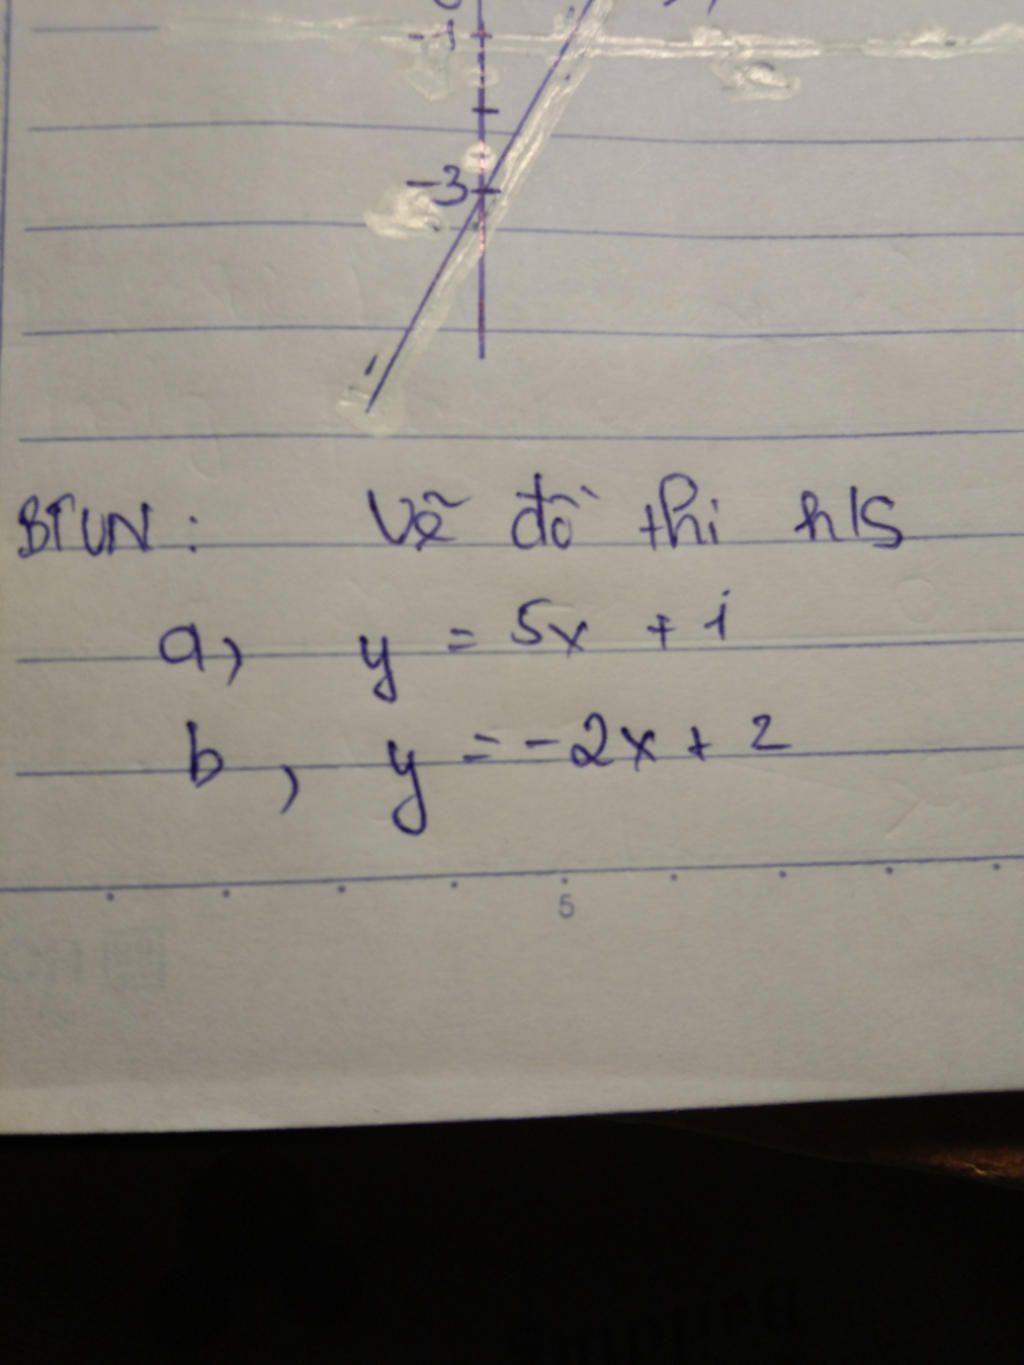 -1
-3
BTVN: Vẽ đồ thi h/S
a, y = 5x + 1
b, y = -2x + 2
5